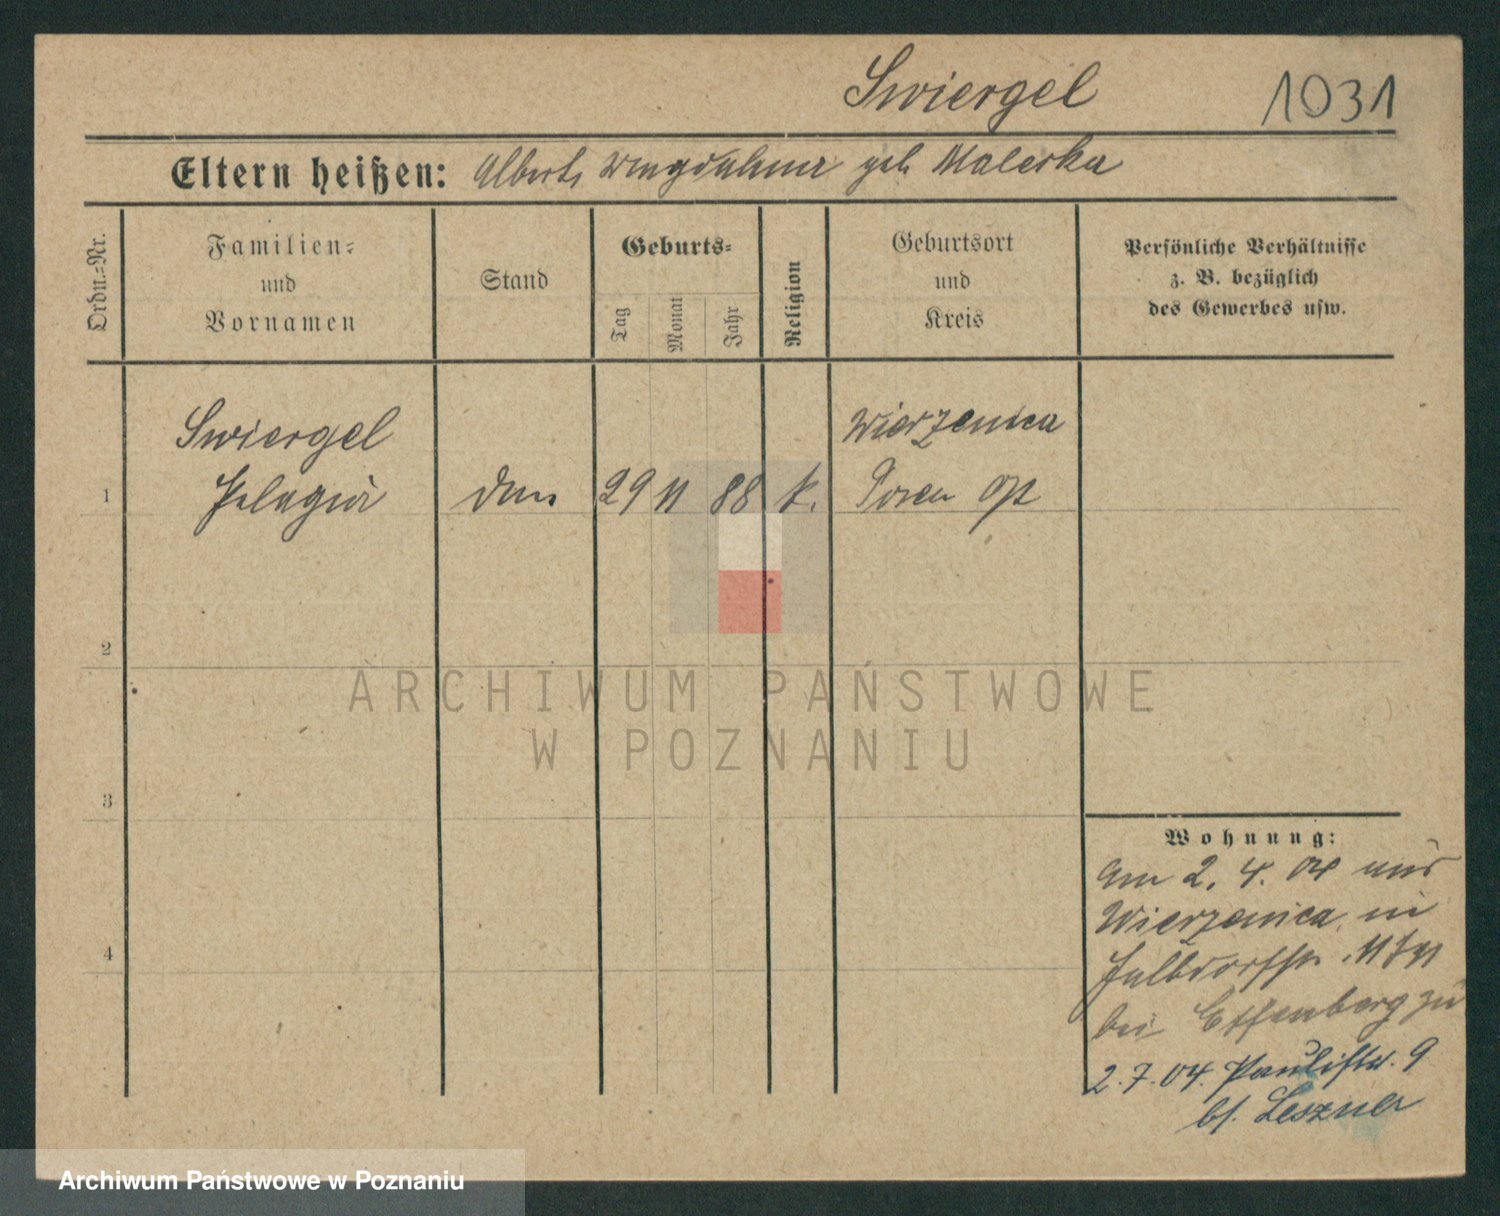 Swiergel 1031
Eltern heißen: Albert, Magdalena geb Malerka
Ordn.-Nr.
Familien-
und
Vornamen
Stand
Geburts-
Tag
Monat
Jahr
Religion
Geburtsort
und
Kreis
Persönliche Verhältnisse
z. B. bezüglich
des Gewerbes usw.
Swiergel Wierzenica
1 Pelagia 29 11 88 k. Posen Ost
2
ARCHIWUM PAŃSTWOWE
W POZNANIU
3
Wohnung:
am 2. 4. 04 aus
Wierzenica in
4
bei Effenberg zu
2.7.04. Paulistr. 9
bf. Leszner
Archiwum Państwowe w Poznaniu